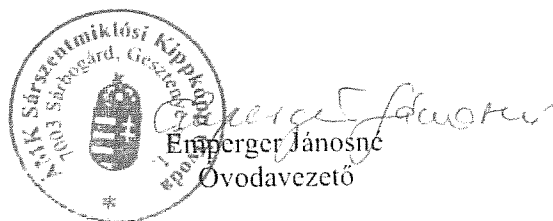 ÁMK Sárszentmiklósi Kippkopp Óvoda
7003 Sárbogárd, Gesztenye
Emperger Jánosné
Emperger Jánosné
Óvodavezető